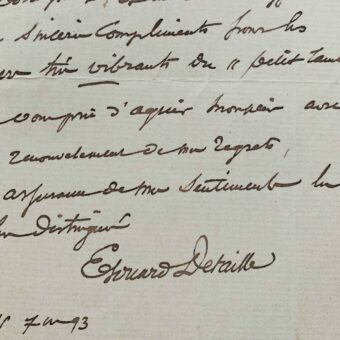 sincères compliments pour les
très vibrants du " petit
compris d'agréer Monsieur avec
renouvellement de mes regrets,
assurance de mes sentiments les
distingués
Edouard Detaille
7 93